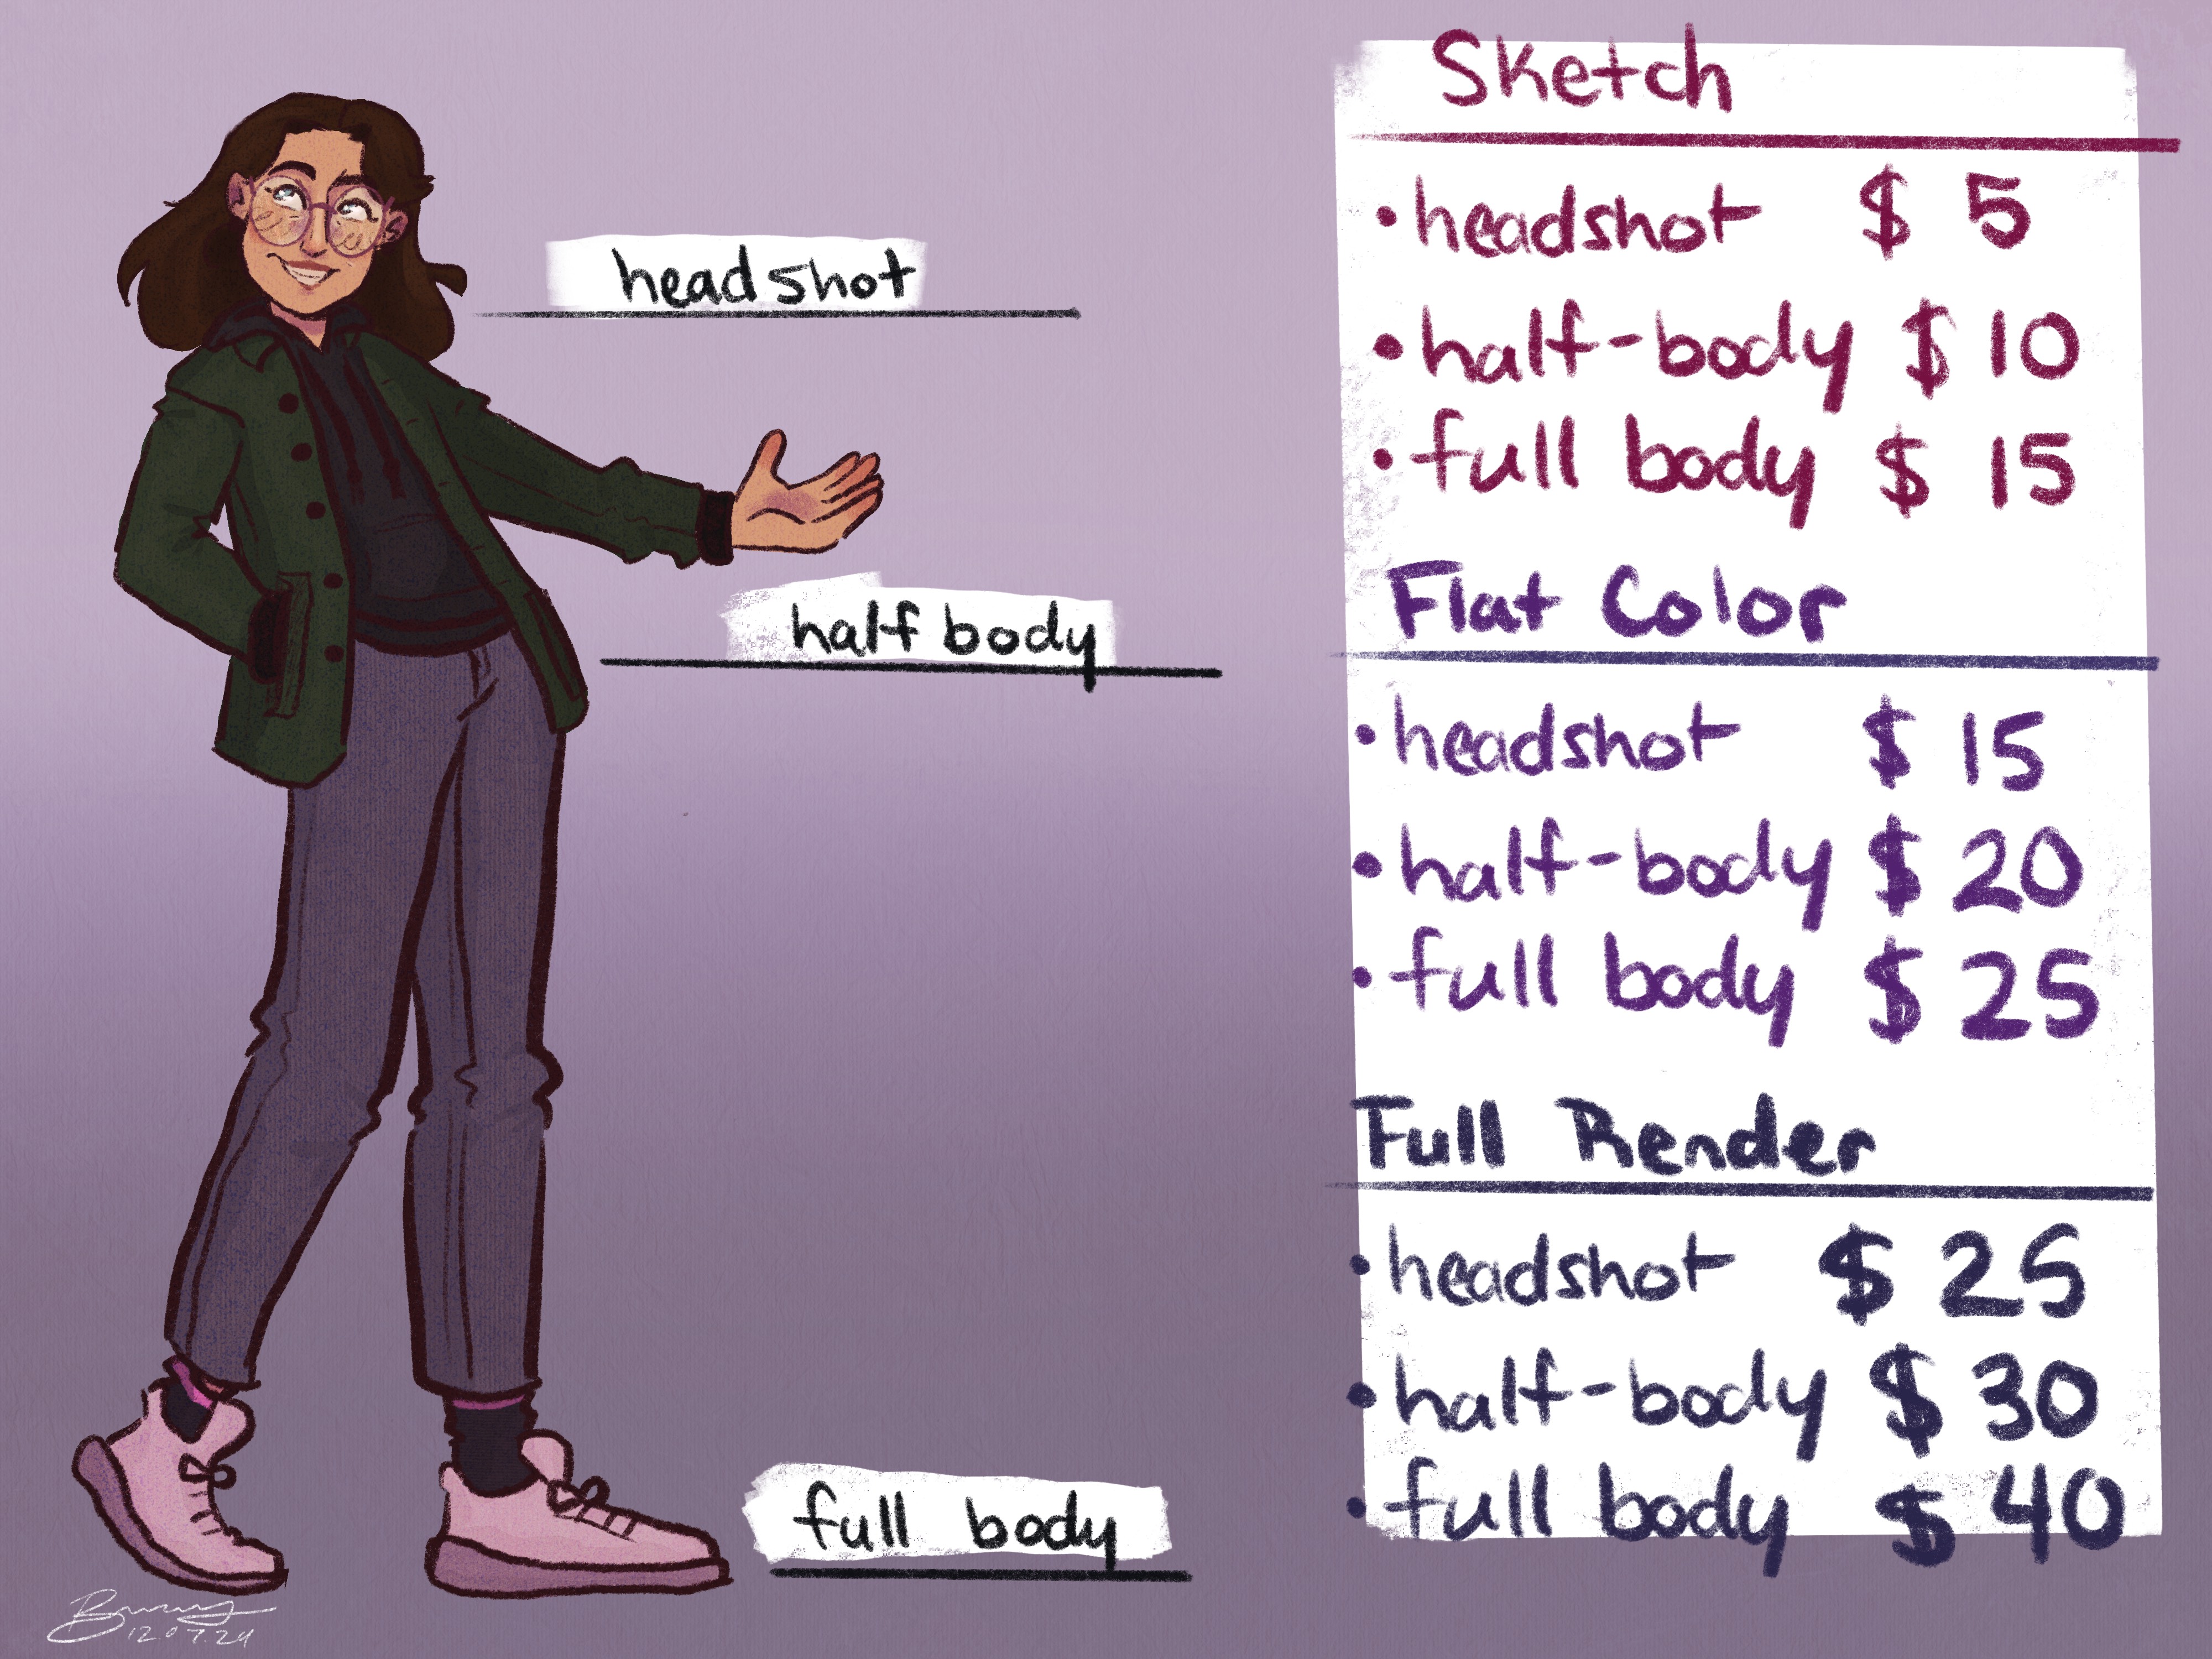 headshot
half body
full body
Sketch
• headshot $ 5
• half-body $ 10
• full body $ 15
Flat Color
• headshot $ 15
• half-body $ 20
• full body $ 25
Full Render
• headshot $ 25
• half-body $ 30
• full body $ 40
12.07.24